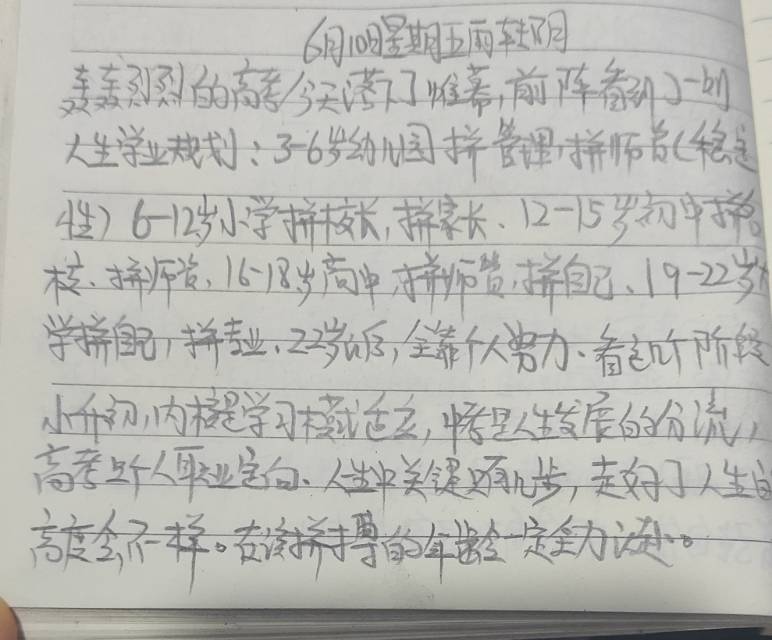 6月10日星期五雨转阴
轰轰烈烈的高考今天落下了帷幕,前阵看到了一则
人生学业规划:3-6岁幼儿园拼管理,拼师资(稳定
性)6-12岁小学拼校长,拼家长、12-15岁初中拼学
校、拼师资,16-18岁高中,拼师资,拼自己、19-22岁大
学拼自己,拼专业、22岁以后,全靠个人努力、看这几个阶段
小升初,内核是学习模式适应,中考是人生发展的分流,
高考是个人职业定向、人生中关键就几步,走好了人生的
高度会不一样。在该拼搏的年龄一定全力以赴。